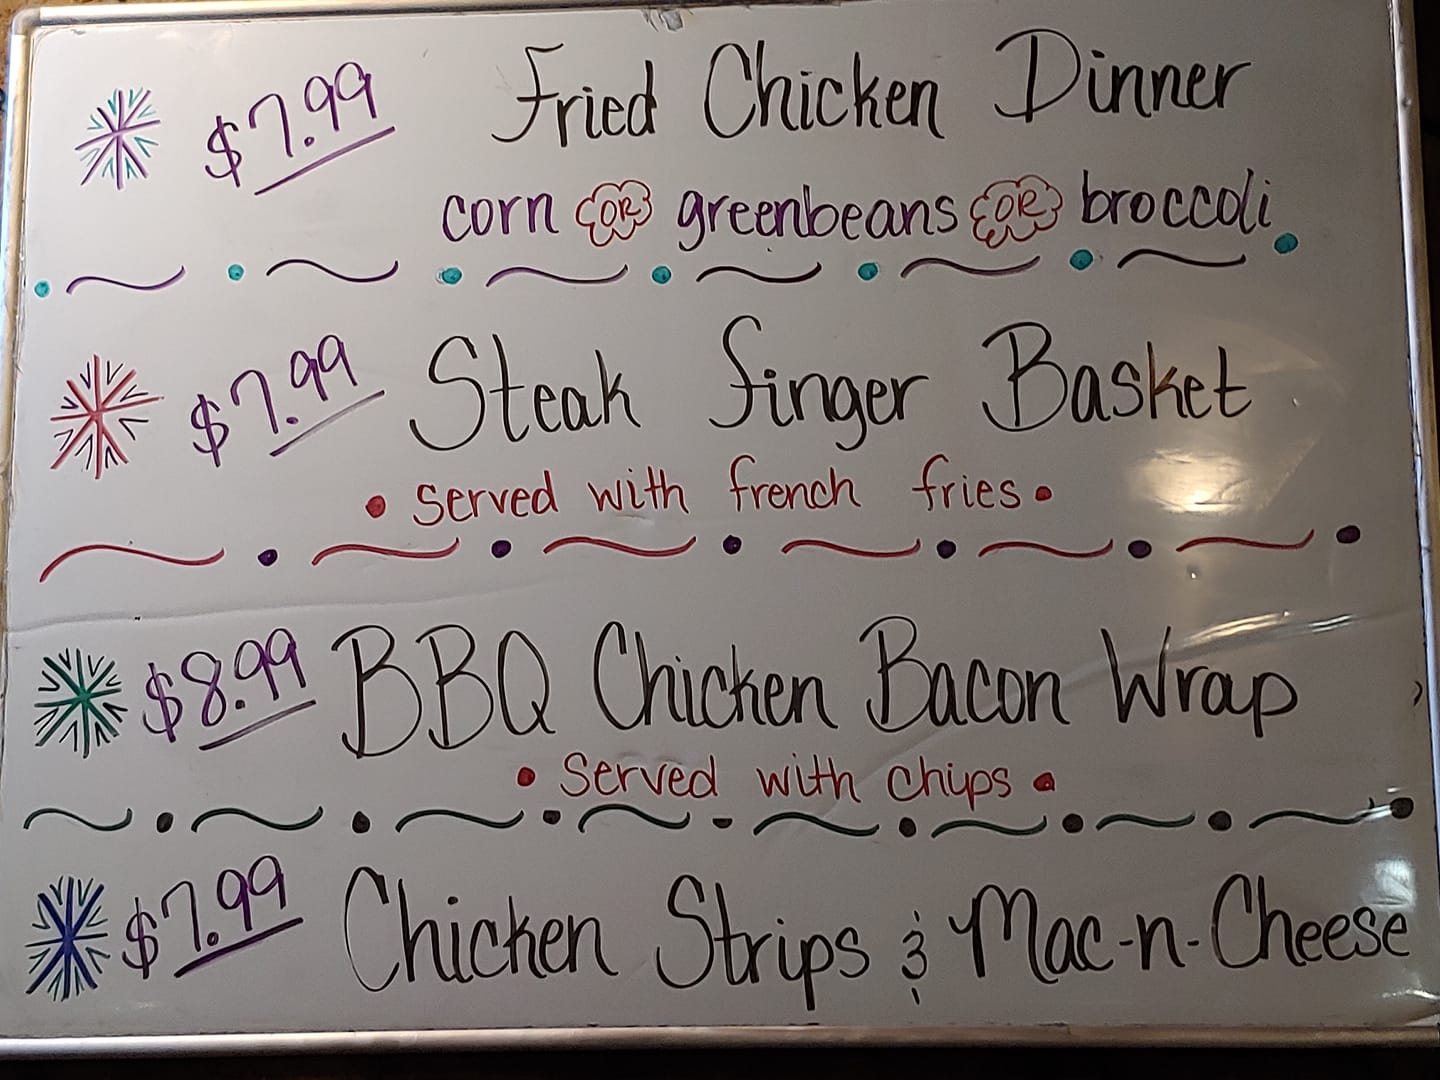 $7.99 Fried Chicken Dinner
corn OR greenbeans OR broccoli
$7.99 Steak finger Basket
• Served with french fries •
$8.99 BBQ Chicken Bacon Wrap
• Served with chips •
$7.99 Chicken Strips & Mac-n-Cheese